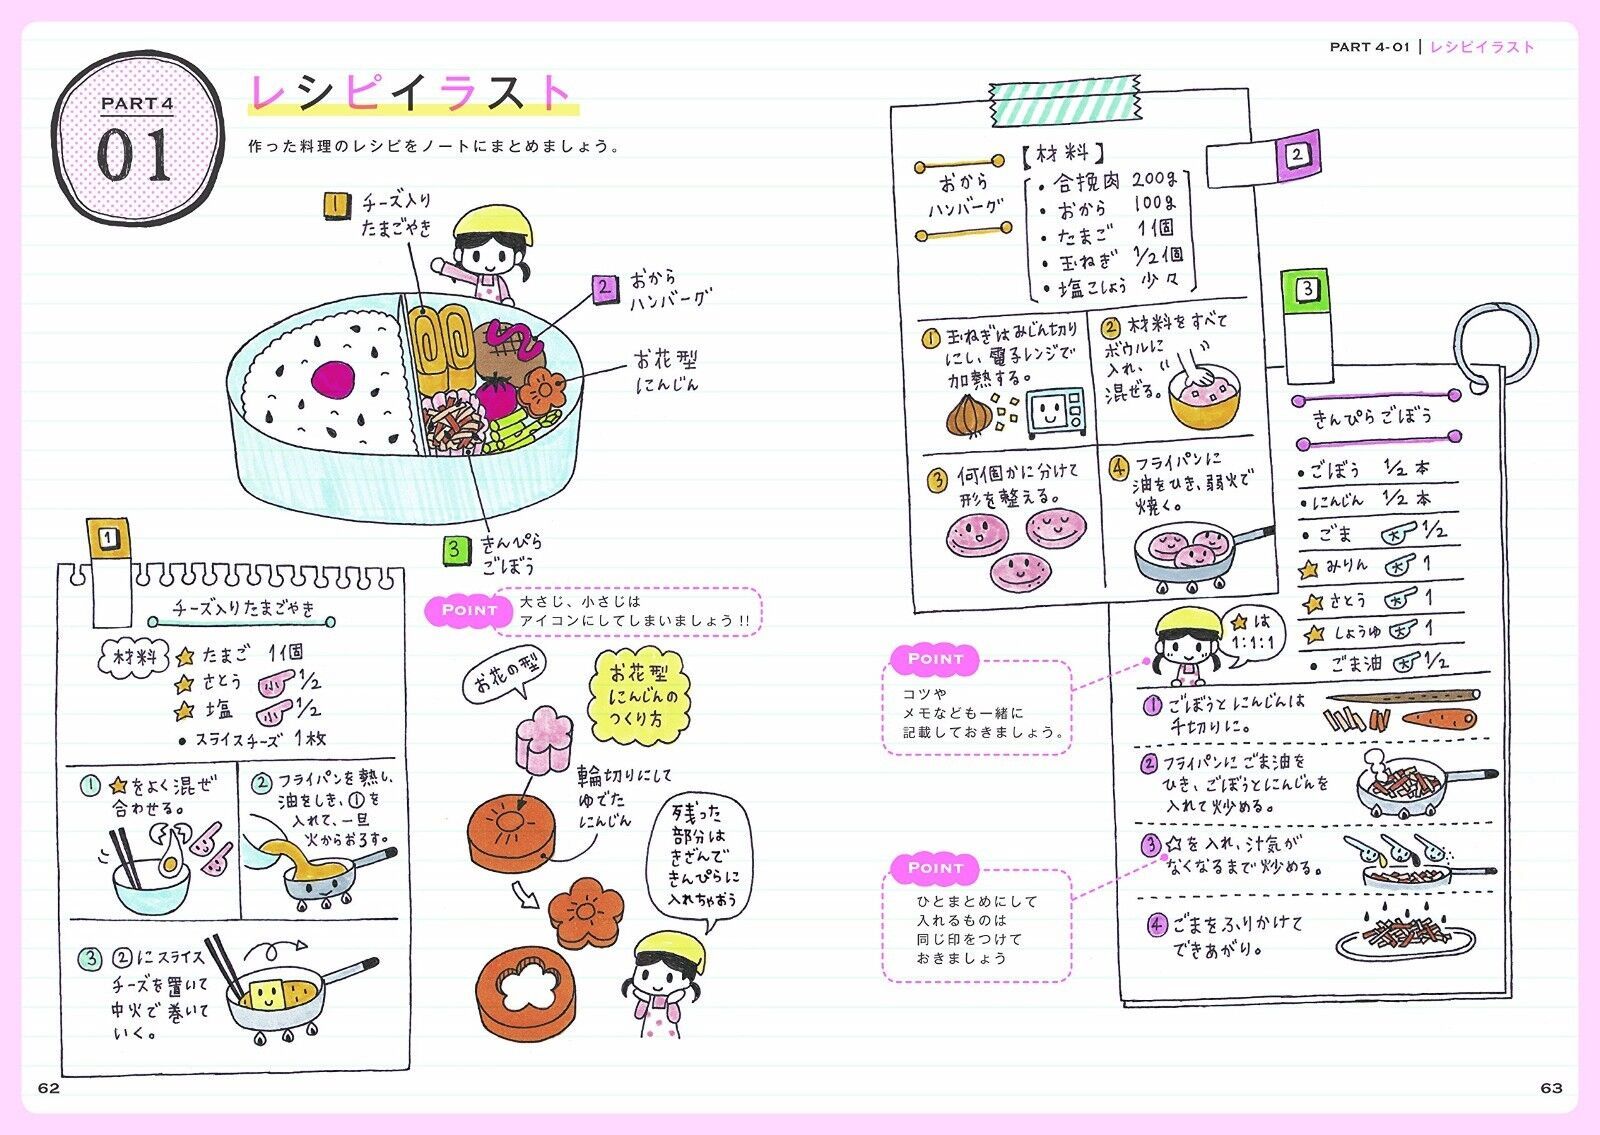 PART 4
01
レシピイラスト
作った料理のレシピをノートにまとめましょう。
1
チーズ入り
たまごやき
2
おから
ハンバーグ
お花型
にんじん
3
きんぴら
ごぼう
1
チーズ入りたまごやき
材料
★ たまご 1個
★ さとう 小 1/2
★ 塩 小 1/2
• スライスチーズ 1枚
① ★をよく混ぜ
合わせる。
② フライパンを熱し、
油をしき、①を
入れて、一旦
火からおろす。
③ ②にスライス
チーズを置いて
中火で巻いて
いく。
POINT
大さじ、小さじは
アイコンにしてしまいましょう!!
お花の型
お花型
にんじんの
つくり方
輪切りにして
ゆでた
にんじん
残った
部分は
きざんで
きんぴらに
入れちゃおう
62
PART 4-01 | レシピイラスト
2
おから
ハンバーグ
【材料】
• 合挽肉 200g
• おから 100g
• たまご 1個
• 玉ねぎ 1/2個
• 塩こしょう 少々
① 玉ねぎはみじん切り
にし、電子レンジで
加熱する。
② 材料をすべて
ボウルに
入れ、
混ぜる。
③ 何個かに分けて
形を整える。
④ フライパンに
油をひき、弱火で
焼く。
3
きんぴらごぼう
• ごぼう 1/2本
• にんじん 1/2本
• ごま 大 1/2
★ みりん 大 1
★ さとう 大 1
★ しょうゆ 大 1
• ごま油 大 1/2
★は
1:1:1
① ごぼうとにんじんは
千切りに。
② フライパンにごま油を
ひき、ごぼうとにんじんを
入れて炒める。
③ ☆を入れ、汁気が
なくなるまで炒める。
④ ごまをふりかけて
できあがり。
POINT
コツや
メモなども一緒に
記載しておきましょう。
POINT
ひとまとめにして
入れるものは
同じ印をつけて
おきましょう
63